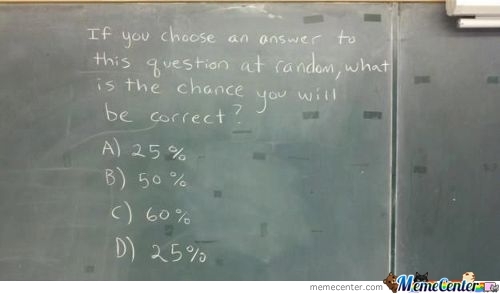 If you choose an answer to
this question at random, what
is the chance you will
be correct?
A) 25%
B) 50%
C) 60%
D) 25%
memecenter.com MemeCenter